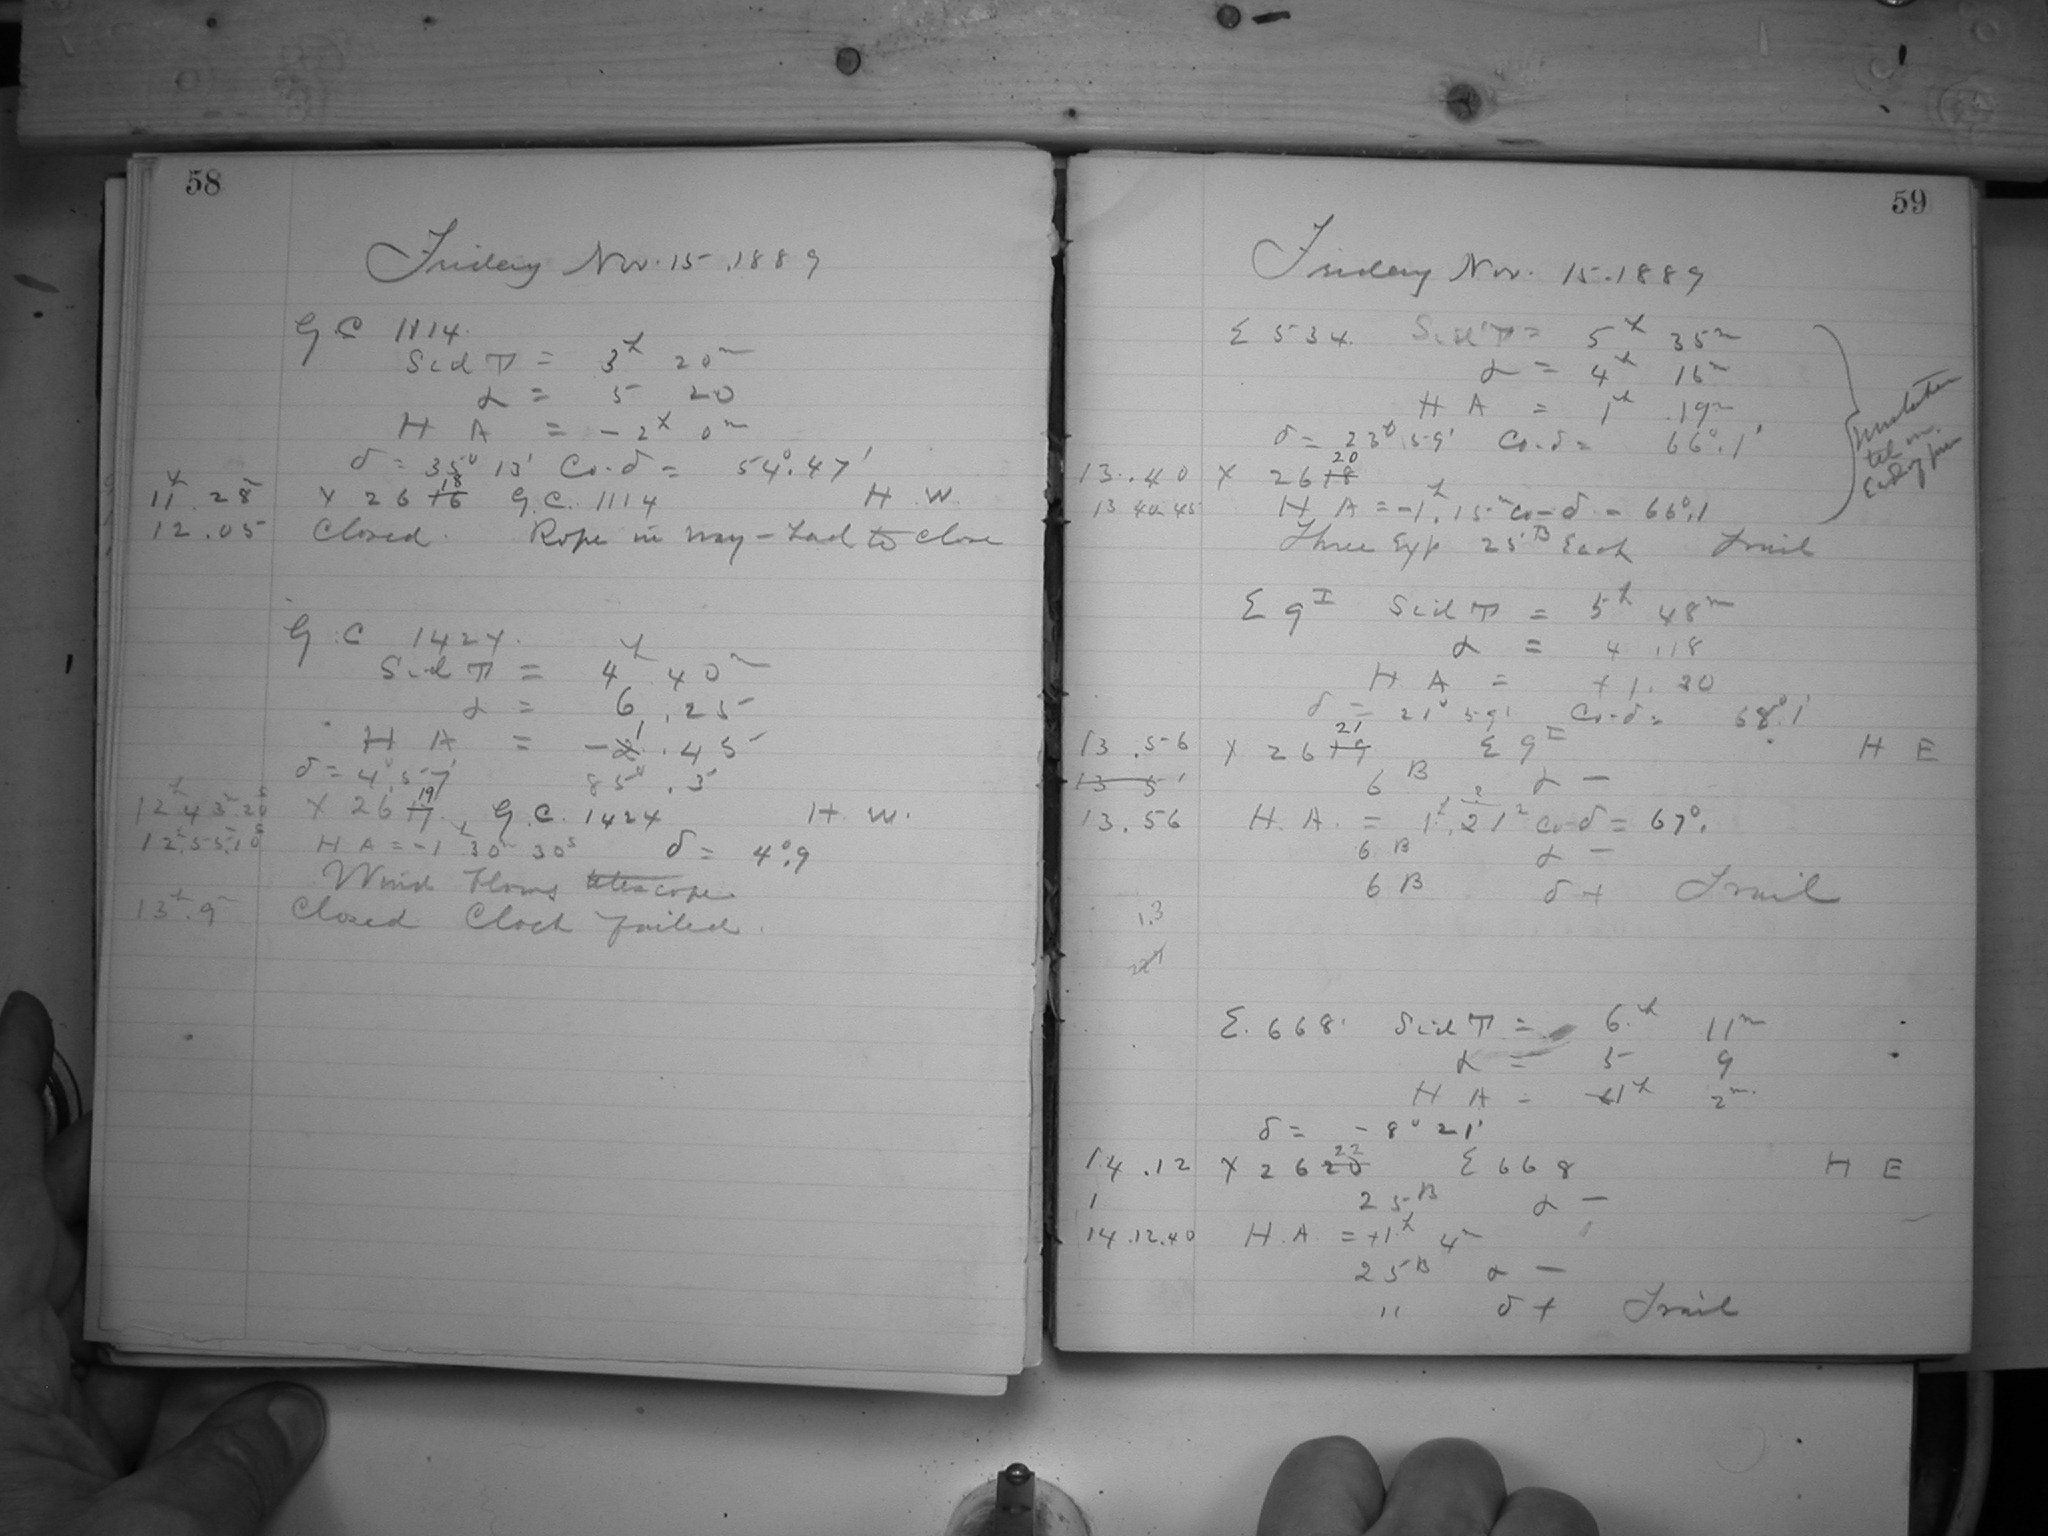 58
Friday Nov. 15, 1889
G.C 1114.
Sid T = 3h 20m
α = 5 20
H A = -2h 0m
δ = 35° 13' Co-δ = 54°.47'
18
11h 28 X 26 16 G.C. 1114 H. W.
12.05 Closed. Rope in way - had to close
G.C 1424.
Sid T = 4h 40m
α = 6 .25
H A = -2 1 .45
δ = 4°.57' 85°.3'
19
12h 43 20s X 26 17 G.C. 1424 H. W.
12.55.10s H A = -1h 30m 30s δ = 4°.9
Wind blows telescope
13h.9 Closed Clock failed.
59
Friday Nov. 15.1889
Σ 534. Sid T = 5h 35m
α = 4h 16m
H A = 1h .19m
δ = 23° 59' Co-δ = 66°.1'
20
13.40 X 26 18
13 40 45 H A = -1h.15m co-δ = 66°.1
Three Exp 25B Each Trail
Σ 9I Sid T = 5h 48m
α = 4 .18
H A = +1.30
δ = 21° 59' Co-δ = 68°.1'
21
13.56 X 26 19 Σ 9I H E
13 5 6B α -
13.56 H.A. = 1h.21 ? co-δ = 67°.
6B α -
6B δ + Trail
1.3
Σ. 668. Sid T = 6.h 11m
α = 5 9
H A = +1h 2m.
δ = -8° 21'
22
14.12 X 26 20 Σ 668 H E
1 25B α -
14.12.40 H.A = +1h 4m
25B α -
" δ + Trail